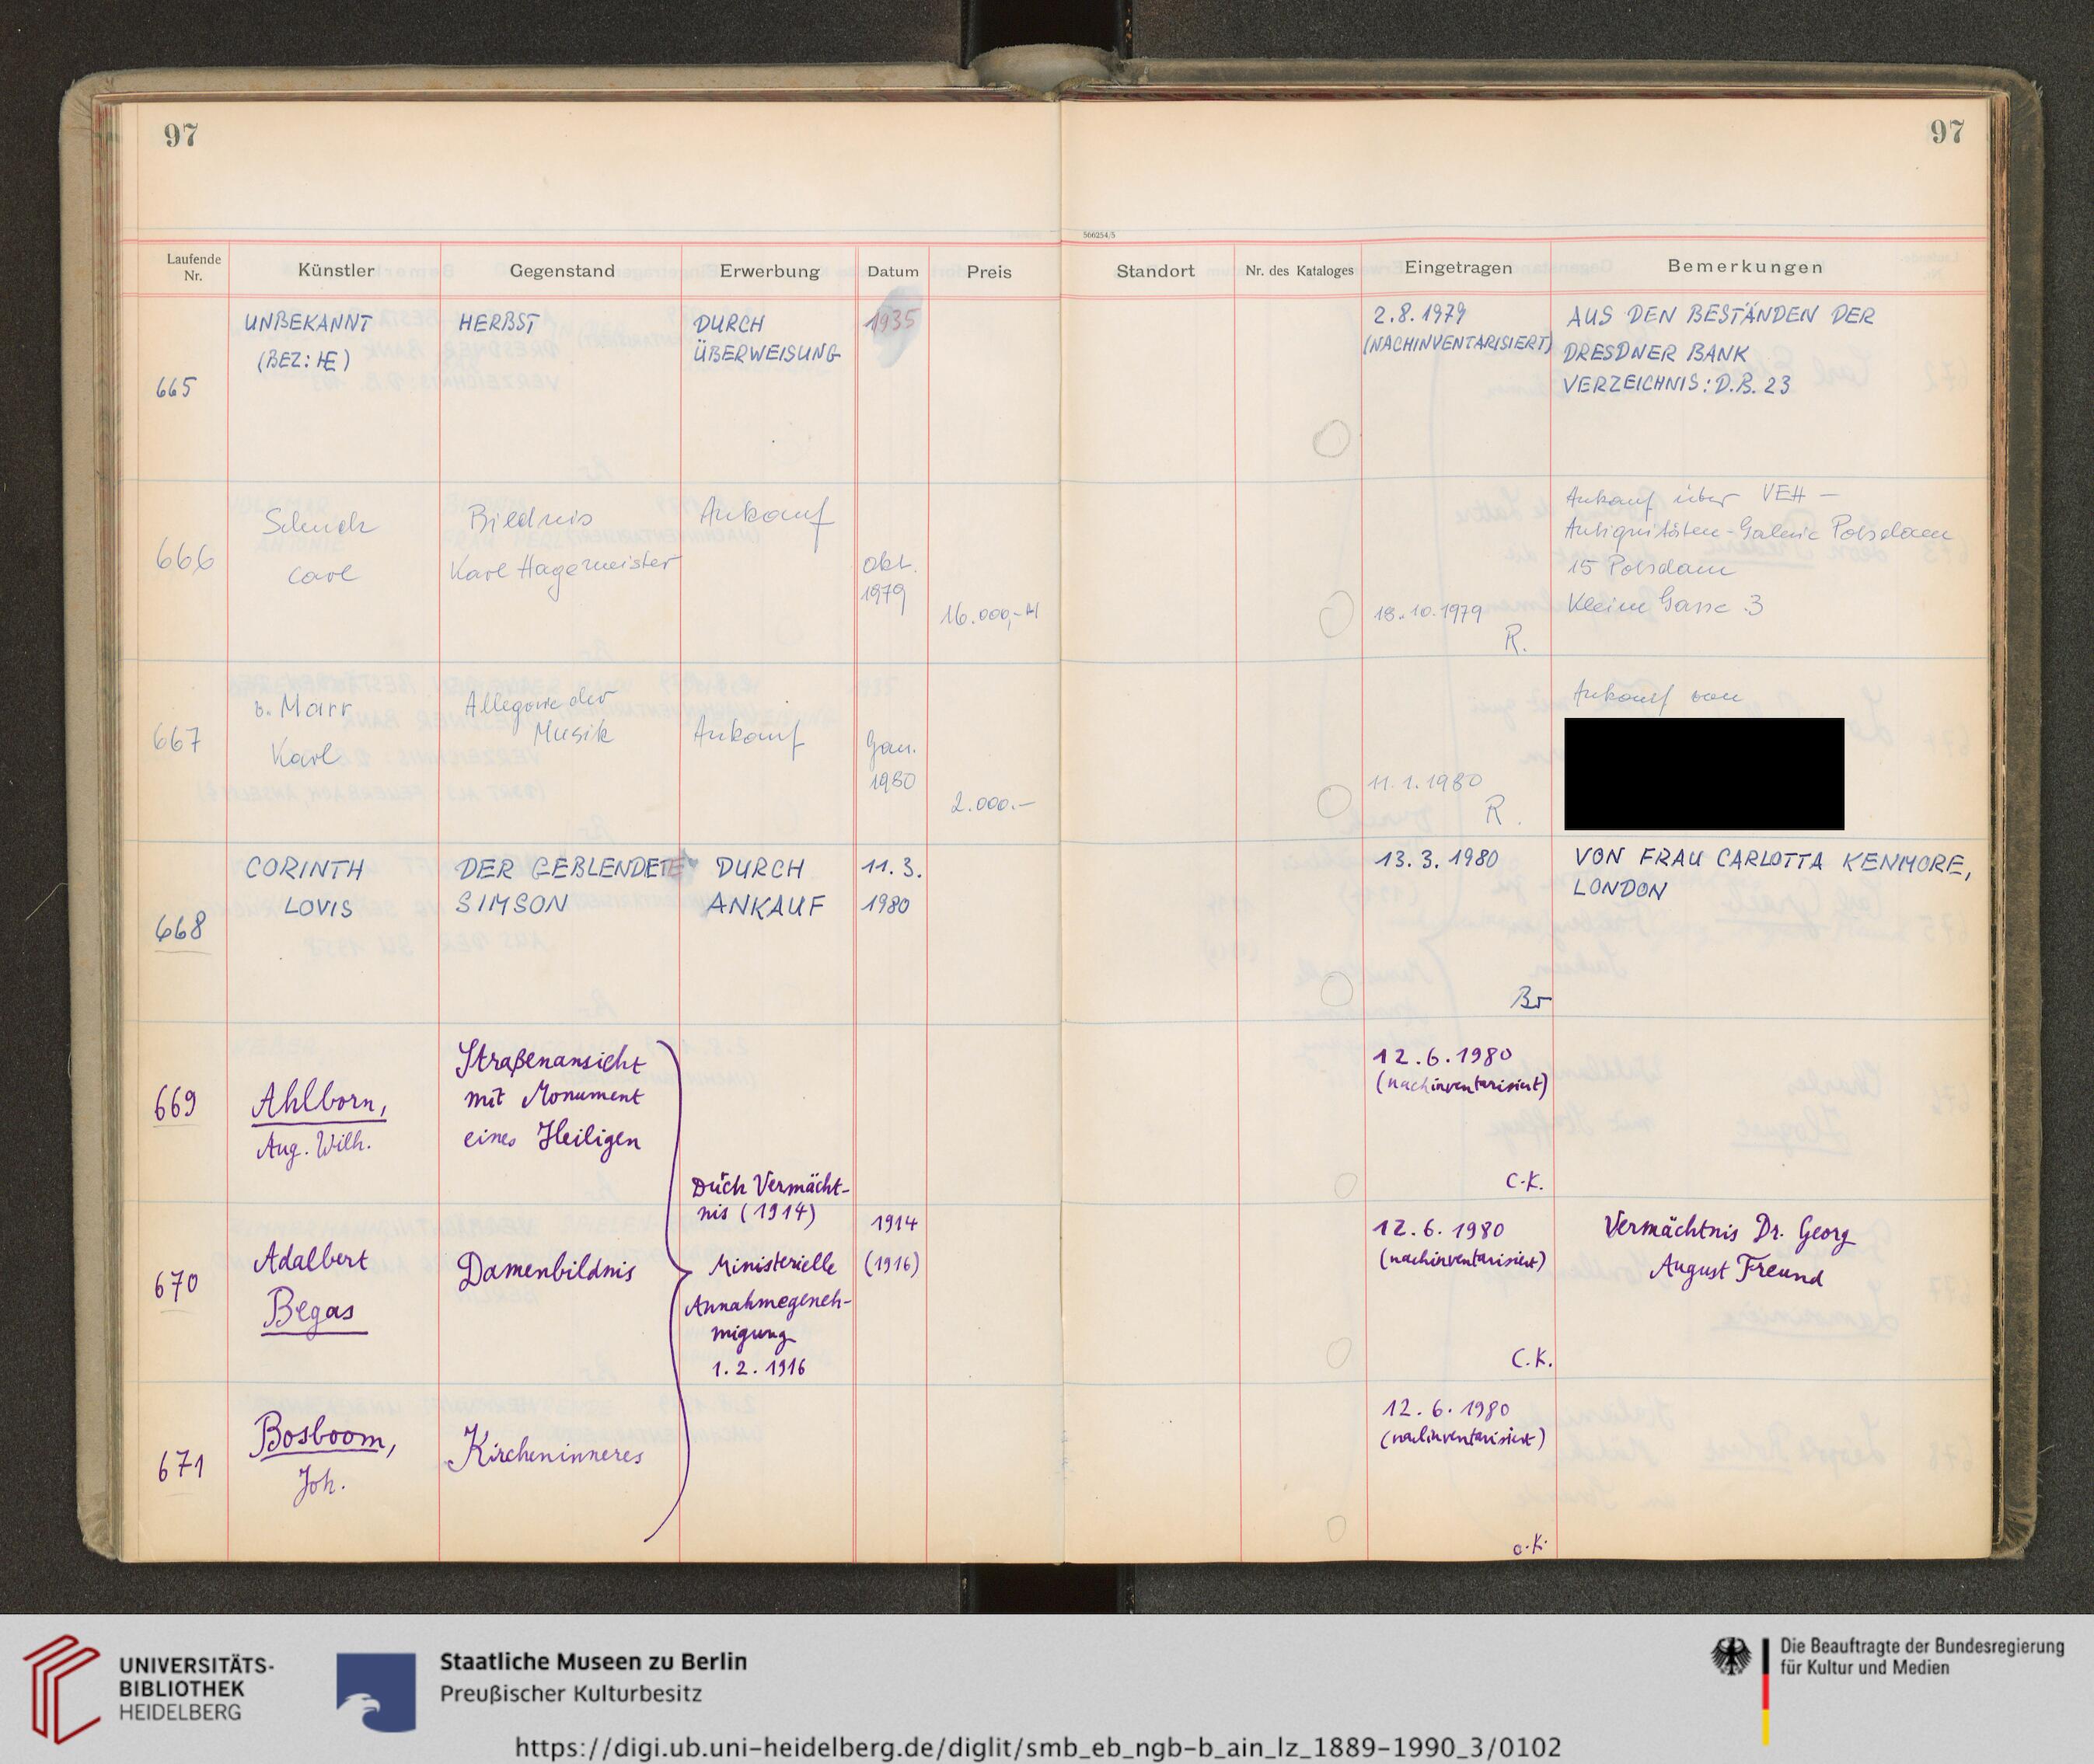 97
97
566254/5
Laufende
Nr.
Künstler
Gegenstand
Erwerbung
Datum
Preis
Standort
Nr. des Kataloges
Eingetragen
Bemerkungen
665
UNBEKANNT
(BEZ: HE)
HERBST
DURCH
ÜBERWEISUNG
1935
2.8.1979
(NACHINVENTARISIERT)
AUS DEN BESTÄNDEN DER
DRESDNER BANK
VERZEICHNIS: D.B. 23
666
Schuch
Carl
Bildnis
Karl Hagemeister
Ankauf
Okt.
1979
16.000,- M
18.10.1979
R.
Ankauf über VEH –
Antiquitäten-Galerie Potsdam
15 Potsdam
Kleine Gasse 3
667
v. Marr
Karl
Allegorie der
Musik
Ankauf
Jan.
1980
2.000.-
11.1.1980
R.
Ankauf von
668
CORINTH
LOVIS
DER GEBLENDETE
SIMSON
DURCH
ANKAUF
11.3.
1980
13.3.1980
Br
VON FRAU CARLOTTA KENMORE,
LONDON
669
Ahlborn,
Aug. Wilh.
Straßenansicht
mit Monument
eines Heiligen
12.6.1980
(nachinventarisiert)
C.K.
670
Adalbert
Begas
Damenbildnis
Durch Vermächt-
nis (1914)
Ministerielle
Annahmegeneh-
migung
1.2.1916
1914
(1916)
12.6.1980
(nachinventarisiert)
C.K.
Vermächtnis Dr. Georg
August Freund
671
Bosboom,
Joh.
Kircheninneres
12.6.1980
(nachinventarisiert)
C.K.
UNIVERSITÄTS-
BIBLIOTHEK
HEIDELBERG
Staatliche Museen zu Berlin
Preußischer Kulturbesitz
Die Beauftragte der Bundesregierung
für Kultur und Medien
https://digi.ub.uni-heidelberg.de/diglit/smb_eb_ngb-b_ain_lz_1889-1990_3/0102